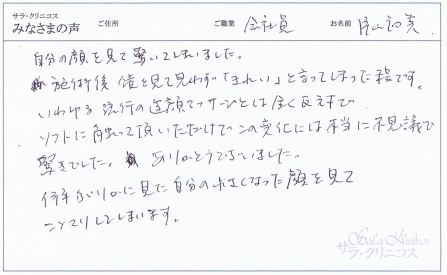 サラ・クリニコス
みなさまの声 ご住所 ご職業 会社員 お名前
自分の顔を見て驚いてしまいました。
施術後 鏡を見て思わず「きれい」と言ってしまった程です。
いわゆる 流行の造顔マッサージとは全く反対で
ソフトに触って頂いただけでこの変化には本当に不思議で
驚きでした。ありがとうございました。
帰りに見た自分の小さくなった顔を見て
ニッコリしてしまいます。
Sala Kliniko
サラ・クリニコス